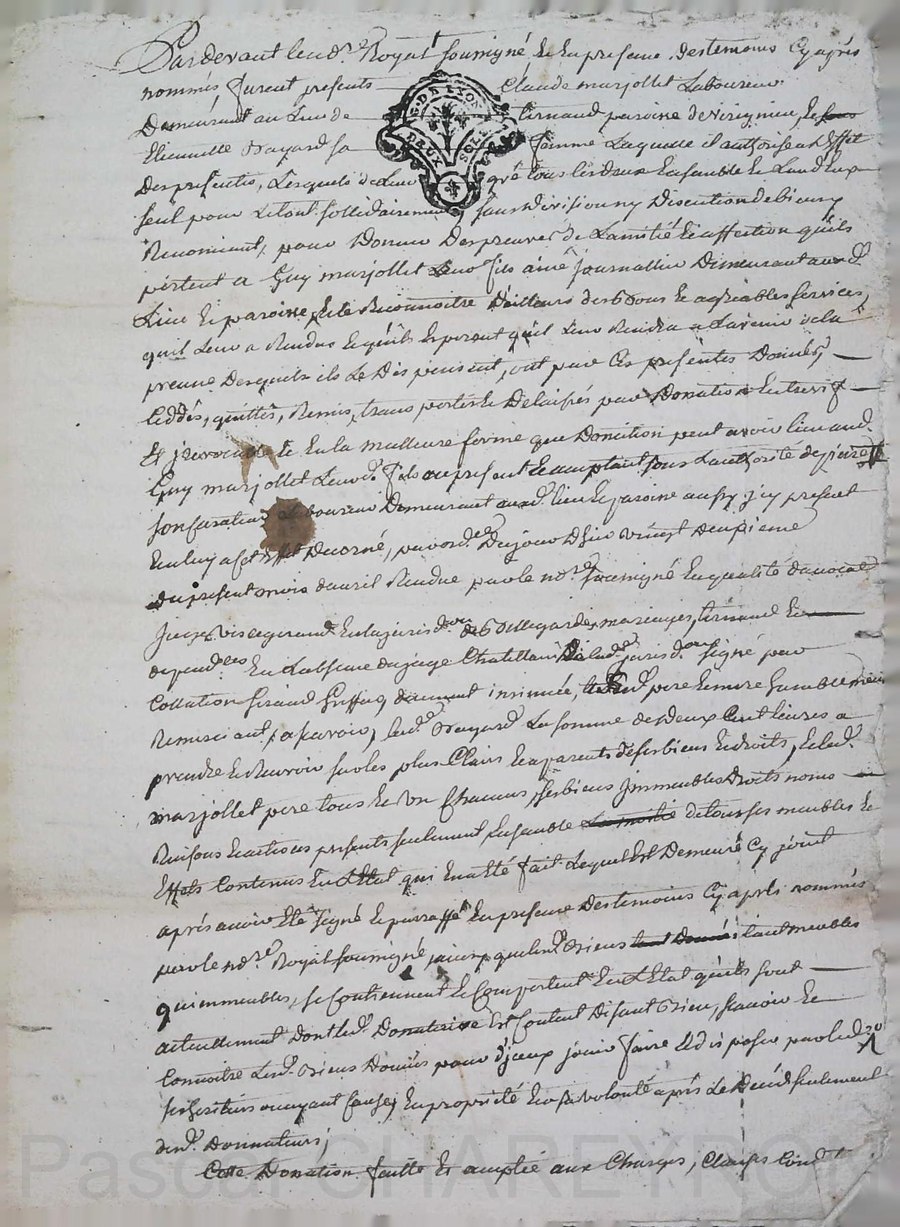 Pardevant le nore Royal soussigné Et En presence des temoins Cy aprés
nommés furent presents Claude marjollet Laboureur
Demeurant au Lieu de tirnaud paroisse de virignieu, Et
Bayard sa femme Laquelle il authorise a L'Effet
Des presentes, Lesquels de Leur gré tous Les deux Ensemble Et L'un d'Eux
seul pour Le tout sollidairement, sans division ny Discution de biens y
Renonciant, pour Donner Des preuves de L'amitié Et affection qu'ils
portent a Guy marjollet Leur fils ainé journallier Demeurant aud.
Lieu Et paroisse, Et le Reconnoitre D'ailleurs des bons Et agréables services
qu'il Leur a Rendus Et qu'ils Esperent qu'il Leur Rendra a L'avenir de la
preuve Desquels ils Le Dispensent, ont par Ces presentes Donnés,
Ceddés, quittés, Remis, transportés Et Delaissés par Donation Entrevif
Et jrrevocable Et En la meilleure forme que Donation peut avoir lieu aud.
Guy marjollet Leurd. fils au present Et acceptant sous L'authorité de pierre
son curateur Laboureur Demeurant aud. lieu Et paroisse aussy jcy present
En Luy a Cet Effet Decerné, par ord.ce Du jour D'hier vingt Deuxieme
Du present mois d'avril Rendue par le nore soussigné En qualité d'avocat
En la jurisd.on de Bellegarde, maringes, tirnaud Et
depend.ces En L'absence du juge Chatellain De lad. jurisd.on signé par
Collation Giraud Greffier, duement insinuée, pere Et mere Ensemblement
Remisciant, a scavoir, lad. Bayard La somme de Deux Cent livres a
prendre Et Recevoir sur les plus Clairs Et aparents de ses biens Et droits, Et led.
marjollet pere tous Et un Chacuns, ses biens jmmeubles Droits noms
Raisons Et actions presents seulement Ensemble La moitié de tous ses meubles Et
Effets Contenus En L'Etat qui En a Eté fait Lequel Est Demeuré Cy joint
aprés avoir Eté signé Et parraffé En presence Des temoins Cy aprés nommés
par le nore Royal soussigné, ainsy que lesd. Biens tant Donnés tant meubles
qu'immeubles, se Contiennent Et Comportent En L'Etat qu'ils sont
actuellement Dont led. Donataire Est Content Disant Bien, scavoir Et
Connoitre Lesd. Biens Donnés pour d'jceux jouir faire Et disposer par led.
ses heritiers ou ayant Cause, En propriété Et a sa volonté aprés Le Decéd seulement
desd. Donnateurs;
Cette Donation faitte Et acceptée aux Charges, Clauses Condit
G. D. B. LYON
DEUX SOLS
Pascal CHAREYRON